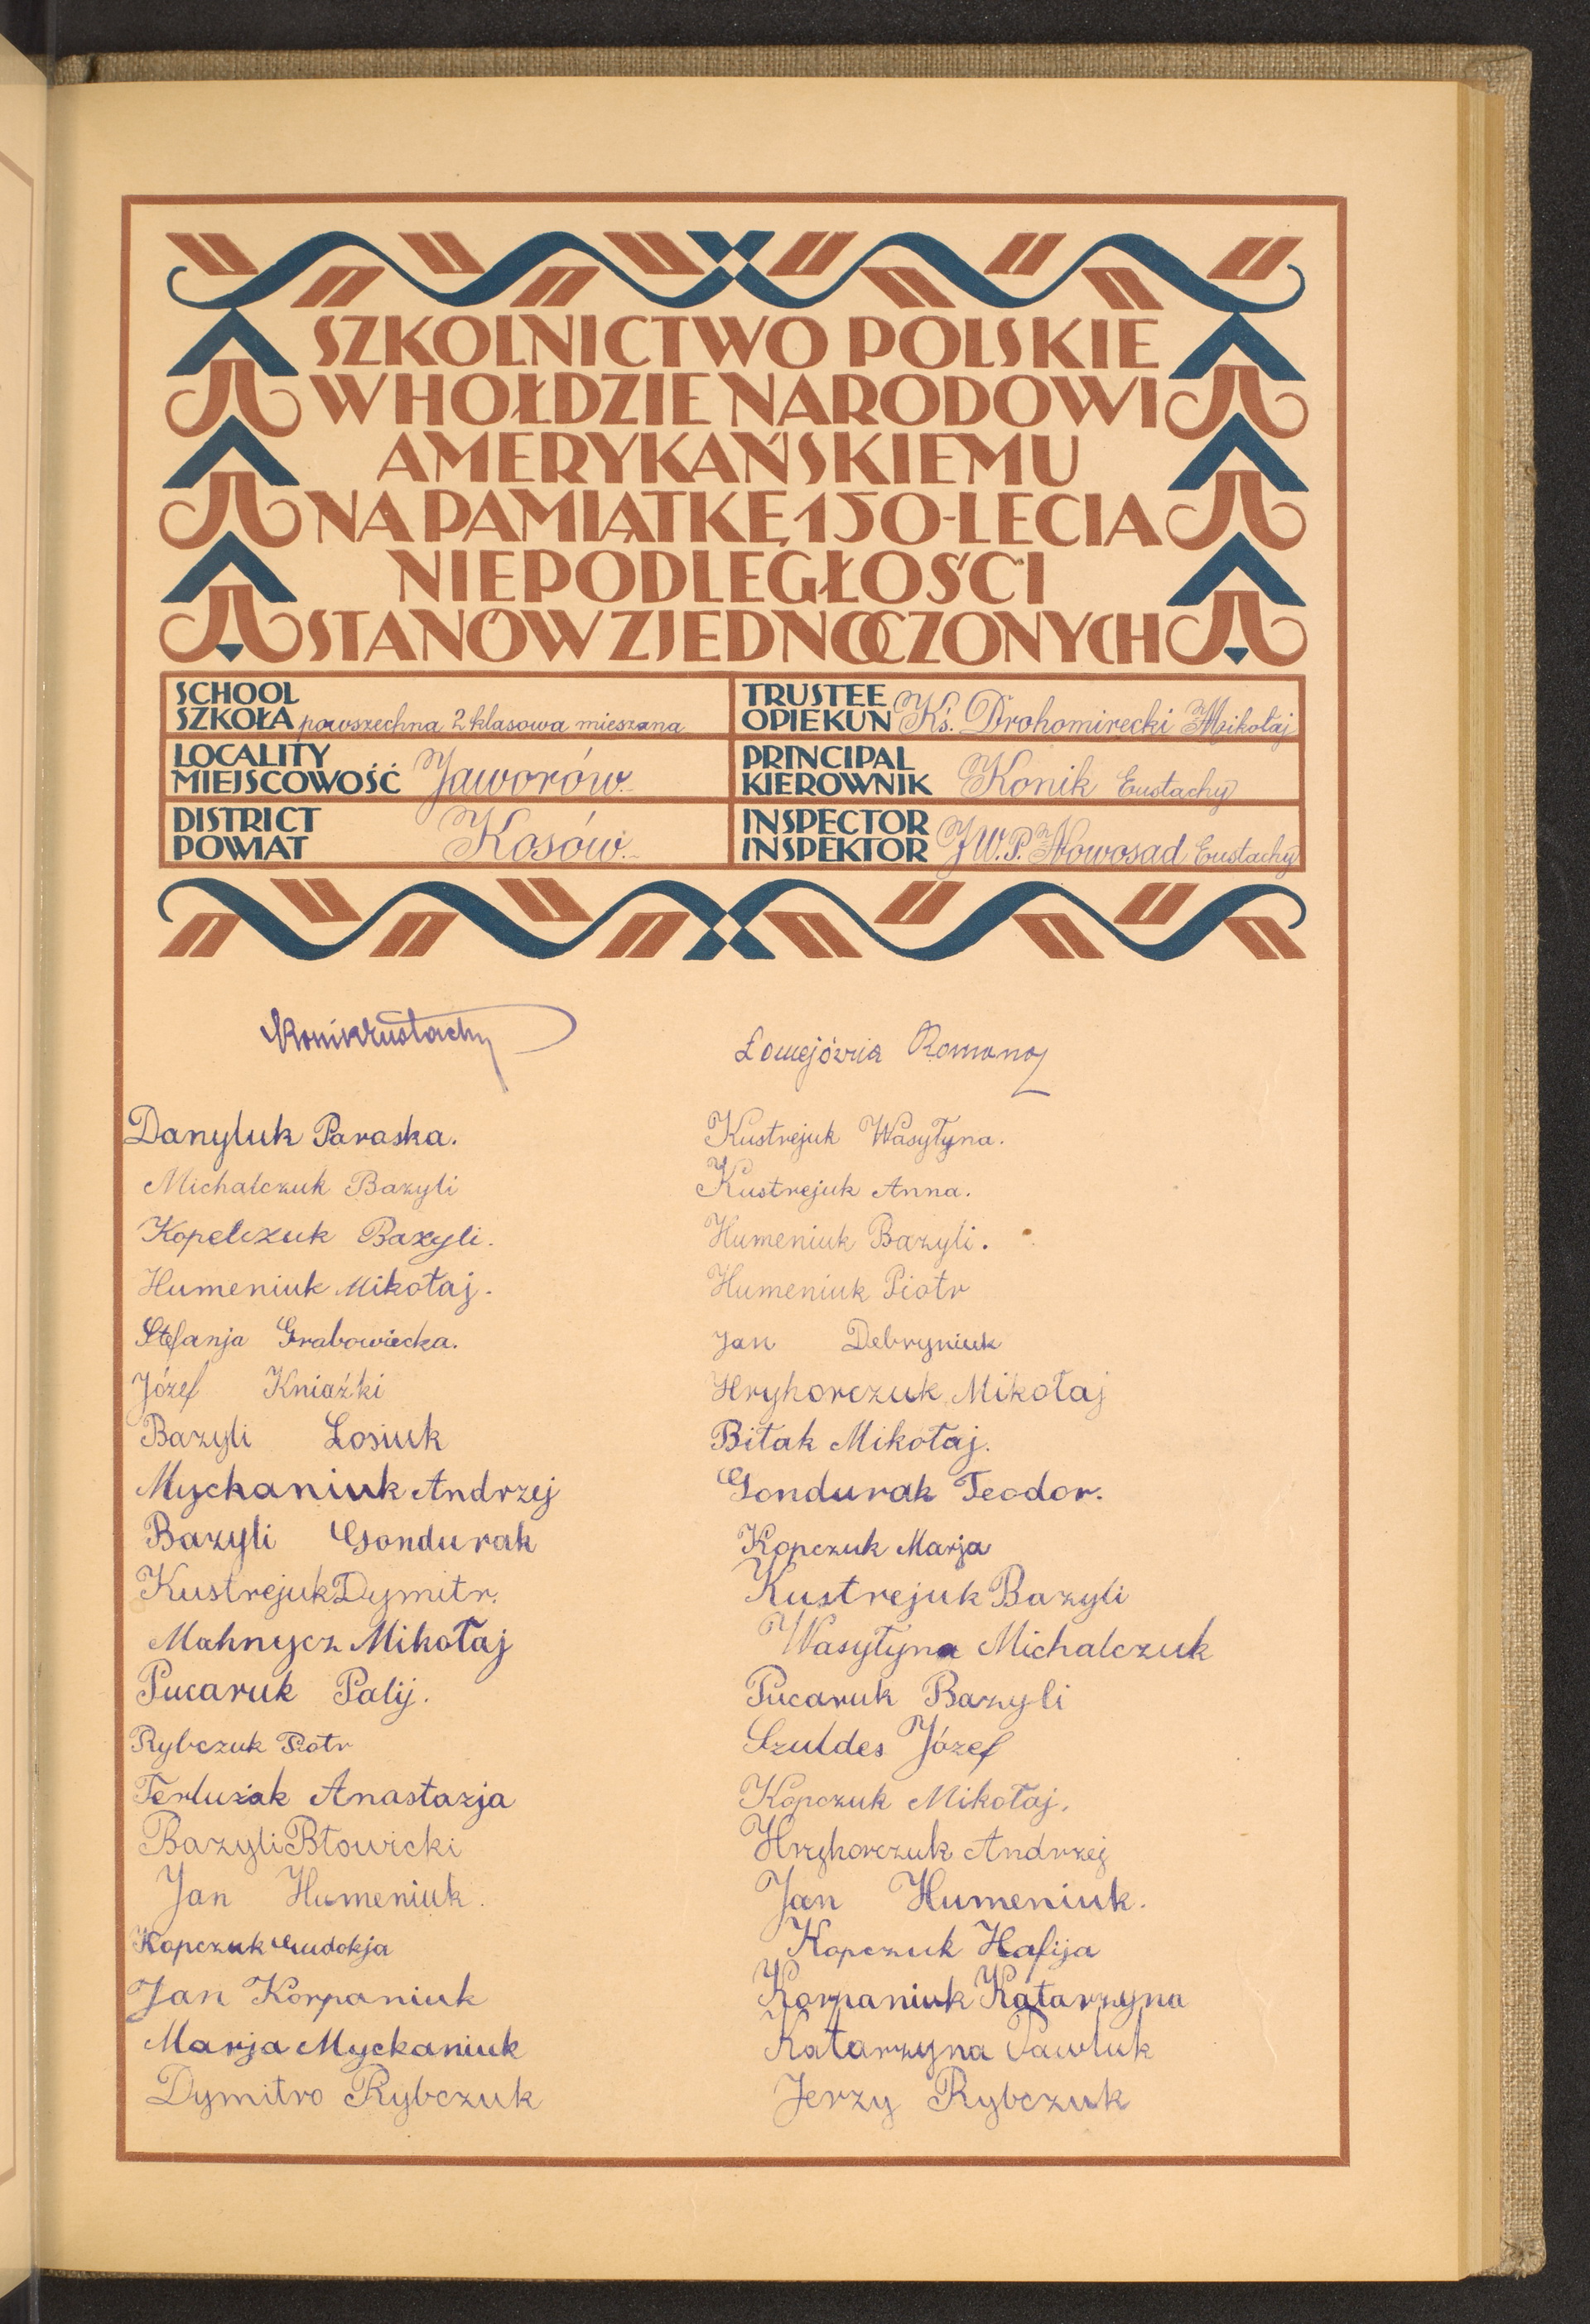 SZKOLNICTWO POLSKIE
W HOŁDZIE NARODOWI
AMERYKAŃSKIEMU
NA PAMIĄTKĘ 150-LECIA
NIEPODLEGŁOŚCI
STANÓW ZJEDNOCZONYCH
SCHOOL
SZKOŁA powszechna 2 klasowa mieszana
LOCALITY
MIEJSCOWOŚĆ Jaworów
DISTRICT
POWIAT Kosów.
TRUSTEE
OPIEKUN Ks. Drohomirecki Mikołaj
PRINCIPAL
KIEROWNIK Konik Eustachy
INSPECTOR
INSPEKTOR J.W.P. Nowosad Eustachy
Konik Eustachy
Romana
Danyluk Paraska.
Michalczuk Bazyli
Kopelczuk Bazyli.
Humeniuk Mikołaj.
Stefanja Grabowiecka.
Józef Kniaźki
Bazyli Łosiuk
Myckaniuk Andrzej
Bazyli Gondurak
Kustrejuk Dymitr.
Mahnycz Mikołaj
Pucaruk Palij.
Rybczuk Piotr
Terlużak Anastazja
Bazyli Błowicki
Jan Humeniuk.
Kopczuk Eudokja
Jan Korpaniuk
Marja Myckaniuk
Dymitro Rybczuk
Kustrejuk Wasyłyna.
Kustrejuk Anna.
Humeniuk Bazyli.
Humeniuk Piotr
Jan Debryniuk
Hryhorczuk Mikołaj
Bitak Mikołaj.
Gondurak Teodor.
Kopczuk Marja
Kustrejuk Bazyli
Wasyłyna Michalczuk
Pucaruk Bazyli
Szuldes Józef
Kopczuk Mikołaj.
Hryhorczuk Andrzej
Jan Humeniuk.
Kopczuk Hafija
Korpaniuk Katarzyna
Katarzyna Pawluk
Jerzy Rybczuk